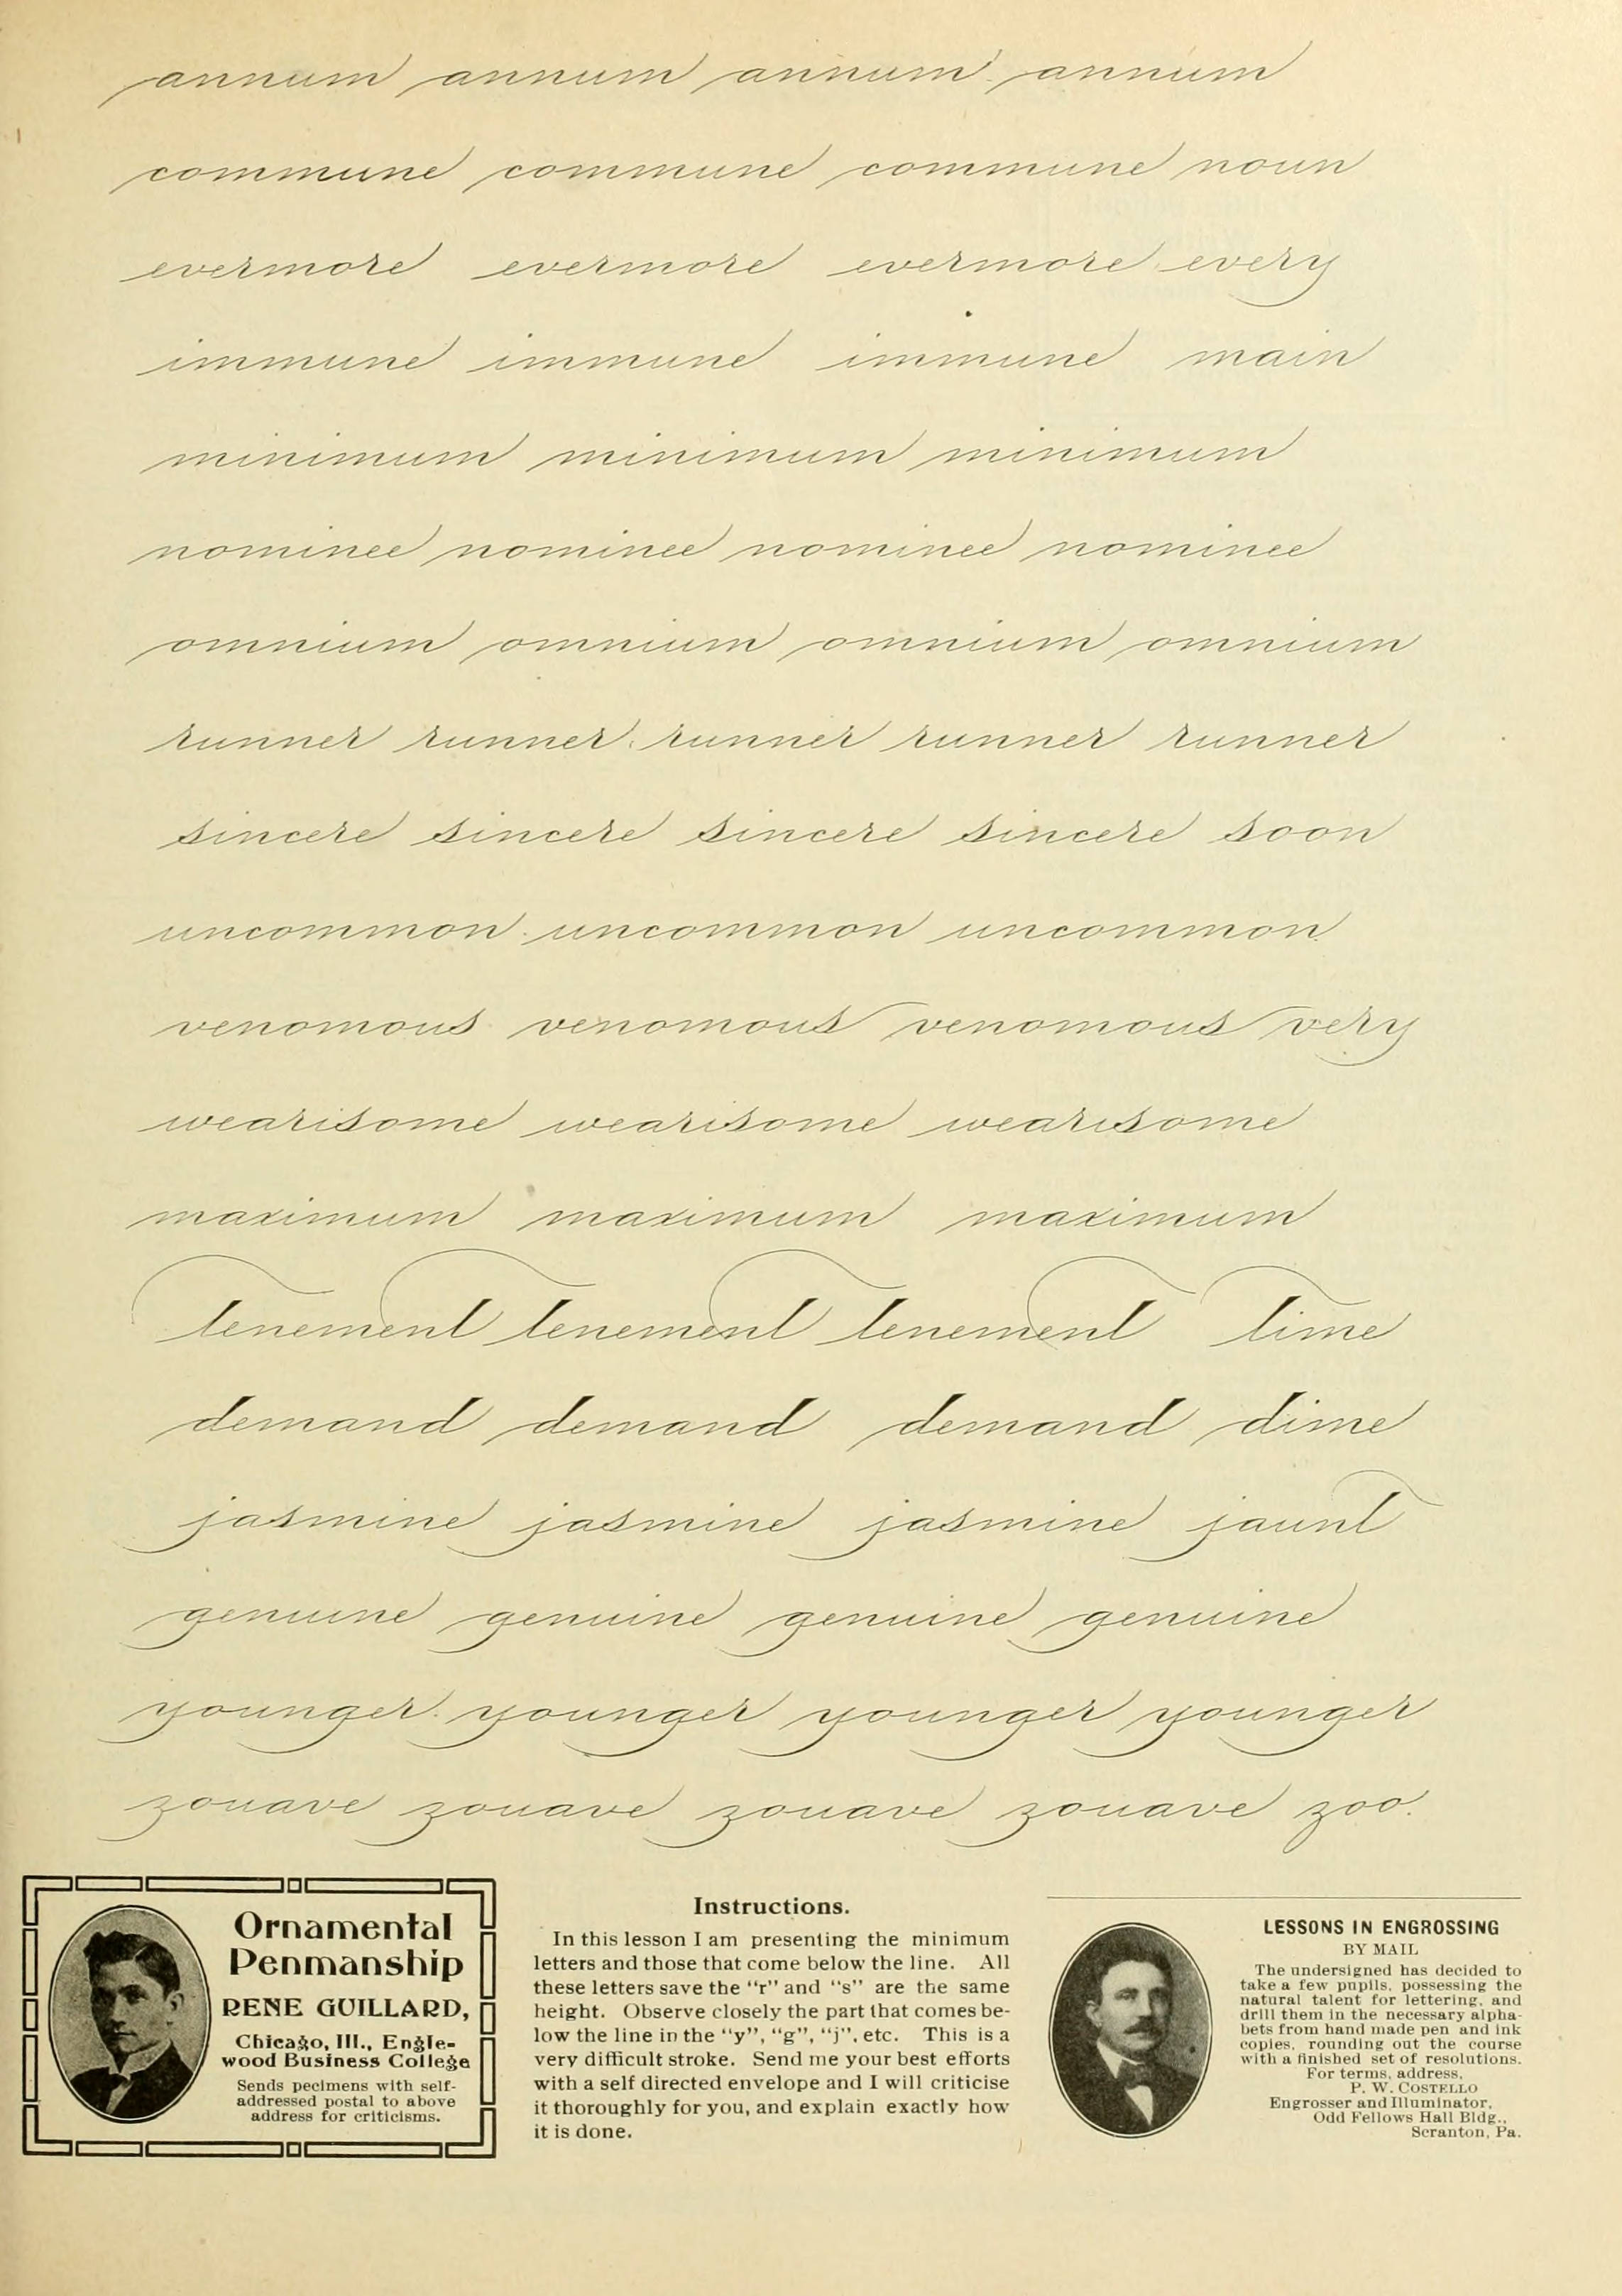 annum annum annum annum
commune commune commune noun
evermore evermore evermore every
immune immune immune main
minimum minimum minimum
nominee nominee nominee nominee
omnium omnium omnium omnium
runner runner runner runner runner
sincere sincere sincere sincere soon
uncommon uncommon uncommon
venomous venomous venomous very
wearisome wearisome wearisome
maximum maximum maximum
tenement tenement tenement time
demand demand demand dime
jasmine jasmine jasmine jaunt
genuine genuine genuine genuine
younger younger younger younger
zouave zouave zouave zouave zoo.
Ornamental
Penmanship
RENE GUILLARD,
Chicago, Ill., Engle-
wood Business College
Sends pecimens with self-
addressed postal to above
address for criticisms.
Instructions.
In this lesson I am presenting the minimum
letters and those that come below the line. All
these letters save the "r" and "s" are the same
height. Observe closely the part that comes be-
low the line in the "y", "g", "j", etc. This is a
very difficult stroke. Send me your best efforts
with a self directed envelope and I will criticise
it thoroughly for you, and explain exactly how
it is done.
LESSONS IN ENGROSSING
BY MAIL
The undersigned has decided to
take a few pupils, possessing the
natural talent for lettering, and
drill them in the necessary alpha-
bets from hand made pen and ink
copies, rounding out the course
with a finished set of resolutions.
For terms, address,
P. W. COSTELLO
Engrosser and Illuminator,
Odd Fellows Hall Bldg.,
Scranton, Pa.